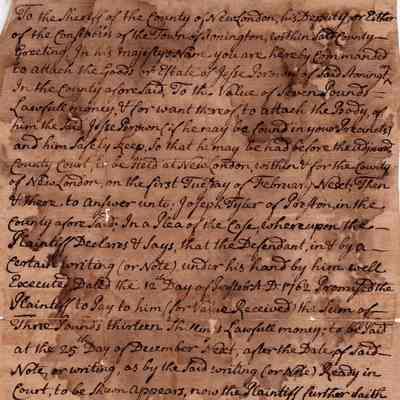 To the Sheriff of the County of New London, his Deputy, or Either
of the Constables of the Town of Stonington, within Said County
Greeting. In his majestys Name you are hereby Commanded
to attach the Goods or Estate of Jesse Perown of Said Stonington
In the County aforesaid, To the Value of Seven Pounds
Lawfull money, & for want thereof to attach the Body, of
him the Said Jesse (if he may be found in your Precincts)
and him Safely keep, So that he may be had before the
County Court, to be Held at New London, within & for the County
of New London, on the first Tuesday of February Next; Then
& there, to Answer unto; Joseph Tyler of Preston, in the
County aforesaid; In a Plea of the Case, whereupon the
Plaintiff Declares & Says, that the Defendant, in & by a
Certain writing (or Note) under his hand by him well
Executed, Dated the 12 Day of A: D: 1762 Promised the
Plaintiff to Pay to him (for Value Received) the Sum of
Three Pounds thirteen Lawfull money; to be Paid
at the 25th Day of December Next, after the Date of Said
Note, or writing, as by the Said writing (or Note) Ready in
Court, to be Shewn Appears, now the Plaintiff further Saith